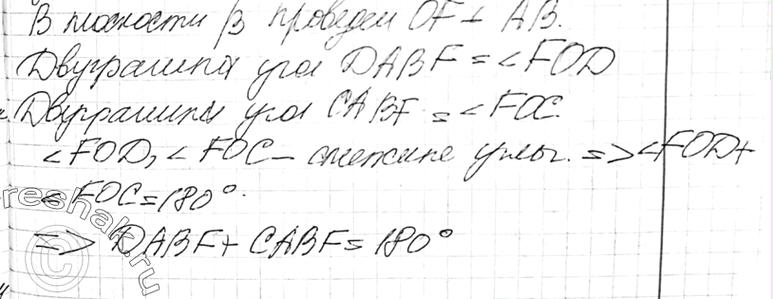 В плоскости β проведем OF ⊥ AB.
Двугранный угол DABF = ∠FOD
Двугранный угол CABF = ∠FOC.
∠FOD, ∠FOC – смежные углы. => ∠FOD+
∠FOC = 180°.
=> DABF + CABF = 180°
reshak.ru